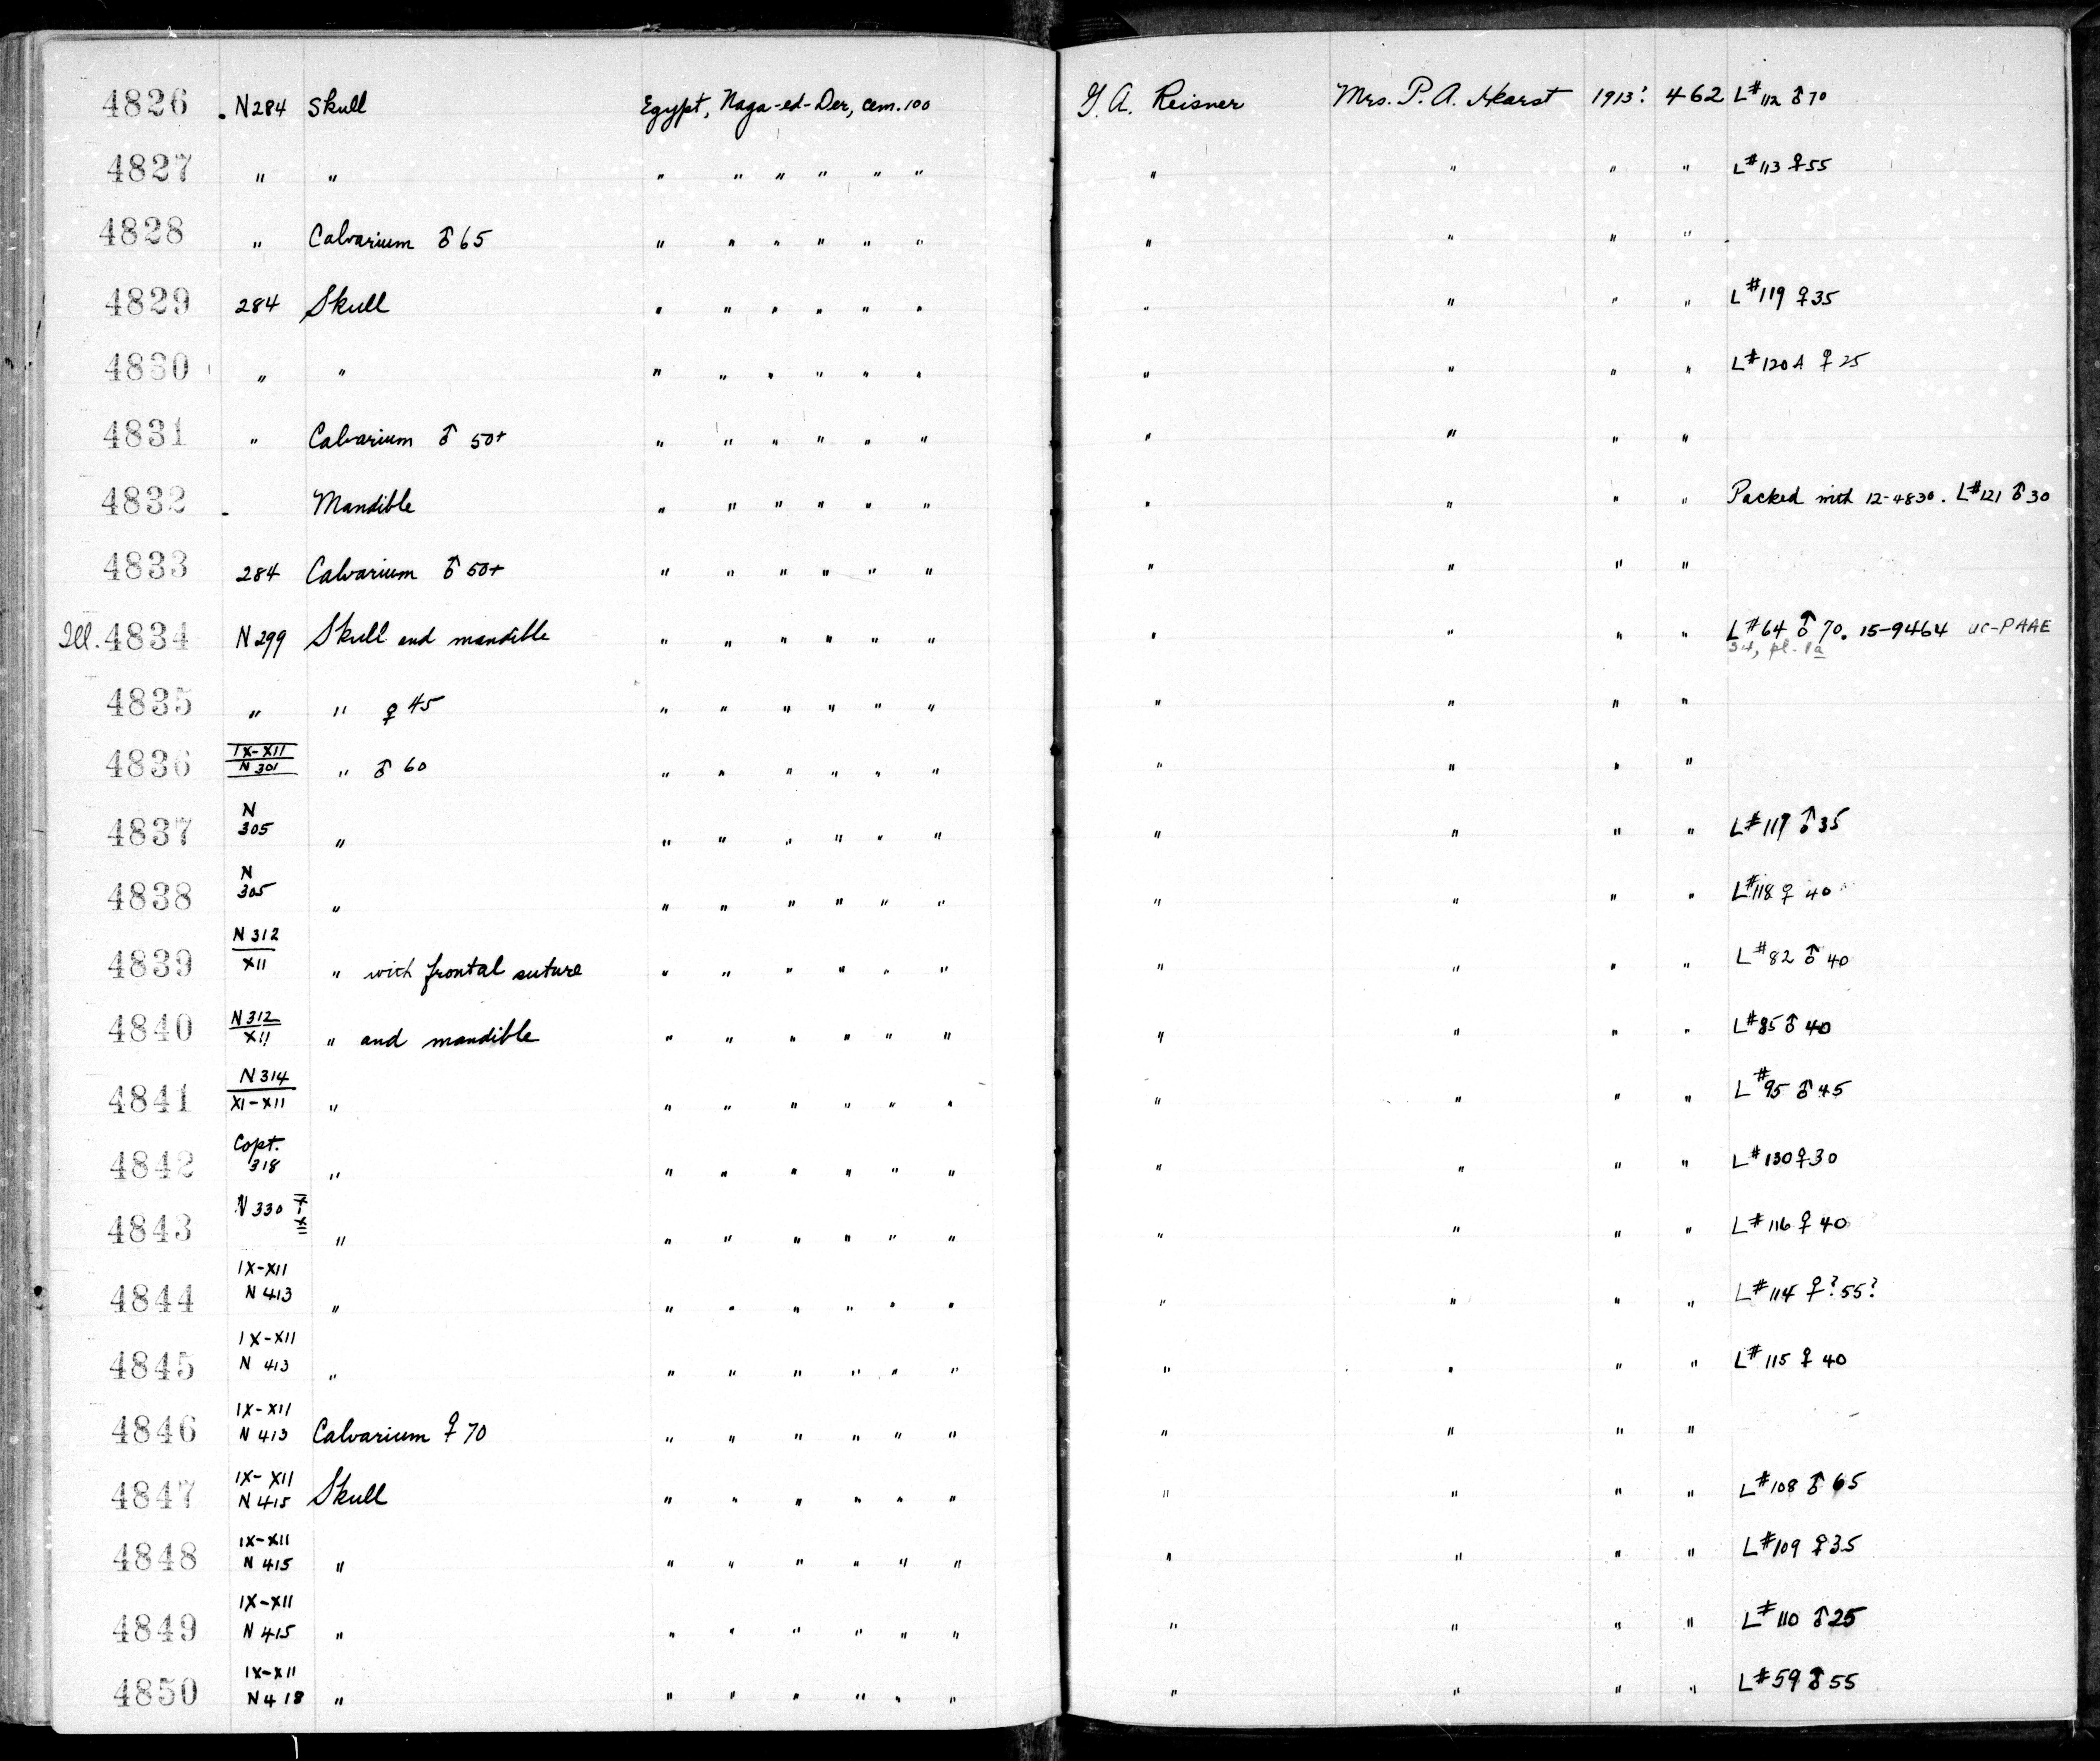 4826 . N284 Skull Egypt, Naga-ed-Der, cem. 100 G. A. Reisner Mrs. P. A. Hearst 1913? 462 L# 112 ♂ 70
4827 " " " " " " " " " " " " L# 113 ♀ 55
4828 " Calvarium ♂ 65 " " " " " " " " " "
4829 284 Skull " " " " " " " " " " L# 119 ♀ 35
4830 " " " " " " " " " " " " L# 120A ♀ 25
4831 " Calvarium ♂ 50+ " " " " " " " " " "
4832 - Mandible " " " " " " " " " " Packed with 12-4830. L# 121 ♂ 30
4833 284 Calvarium ♂ 50+ " " " " " " " " " "
Ill. 4834 N299 Skull and mandible " " " " " " " " " " L# 64 ♂ 70. 15-9464 UC-PAAE
34, pl. 1a
4835 " " ♀ 45 " " " " " " " " " "
4836 IX-XII
N 301 " ♂ 60 " " " " " " " " " "
4837 N
305 " " " " " " " " " " " L# 117 ♂ 35
4838 N
305 " " " " " " " " " " " L# 118 ♀ 40
4839 N 312
XII " with frontal suture " " " " " " " " " " L# 82 ♂ 40
4840 N 312
XII " and mandible " " " " " " " " " " L# 85 ♂ 40
4841 N 314
XI-XII " " " " " " " " " " " L# 95 ♂ 45
4842 Copt.
318 " " " " " " " " " " " L# 130 ♀ 30
4843 N 330 " " " " " " " " " " " L# 116 ♀ 40
4844 IX-XII
N 413 " " " " " " " " " " " L# 114 ♀? 55?
4845 IX-XII
N 413 " " " " " " " " " " " L# 115 ♀ 40
4846 IX-XII
N 413 Calvarium ♀ 70 " " " " " " " " " "
4847 IX-XII
N 415 Skull " " " " " " " " " " L# 108 ♂ 65
4848 IX-XII
N 415 " " " " " " " " " " " L# 109 ♀ 35
4849 IX-XII
N 415 " " " " " " " " " " " L# 110 ♂ 25
4850 IX-XII
N 418 " " " " " " " " " " " L# 59 ♂ 55